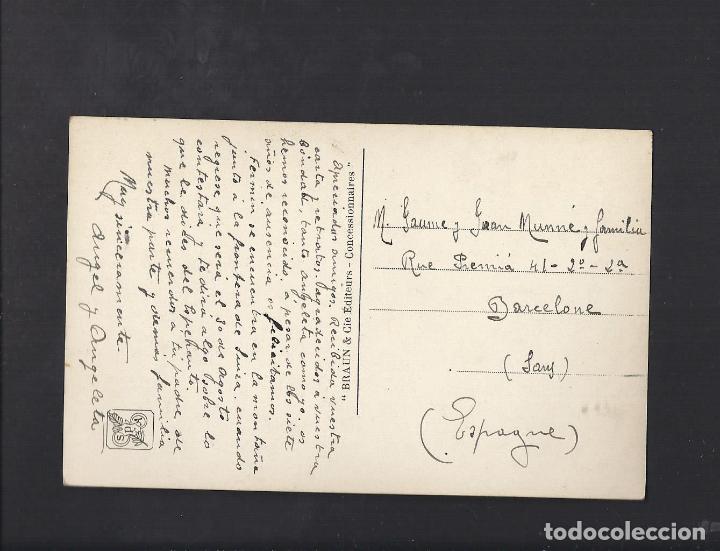 Apreciados amigos. Recibida vuestra
carta y retratos. Agradecidos a vuestra
bondad, tanto Angeleta como yo, os
hemos reconocido, a pesar de los siete
años de ausencia os felicitamos.
Fermin se encuentra en la montaña
junto a la frontera de Suiza. cuando
regrese, que sera el 30 de Agosto
contestara y te dira algo sobre lo
que le dices del
muchos recuerdos a tu padre de
nuestra parte y demas familia
Muy sinceramente.
Angel y Angeleta
" BRAUN & Cie Editeurs-Concessionnaires "
M. Jaume y Joan Munné y familia
Rue Premiá 41-2º-2ª
Barcelone
(Sans)
(Espagne)
todocoleccion.net